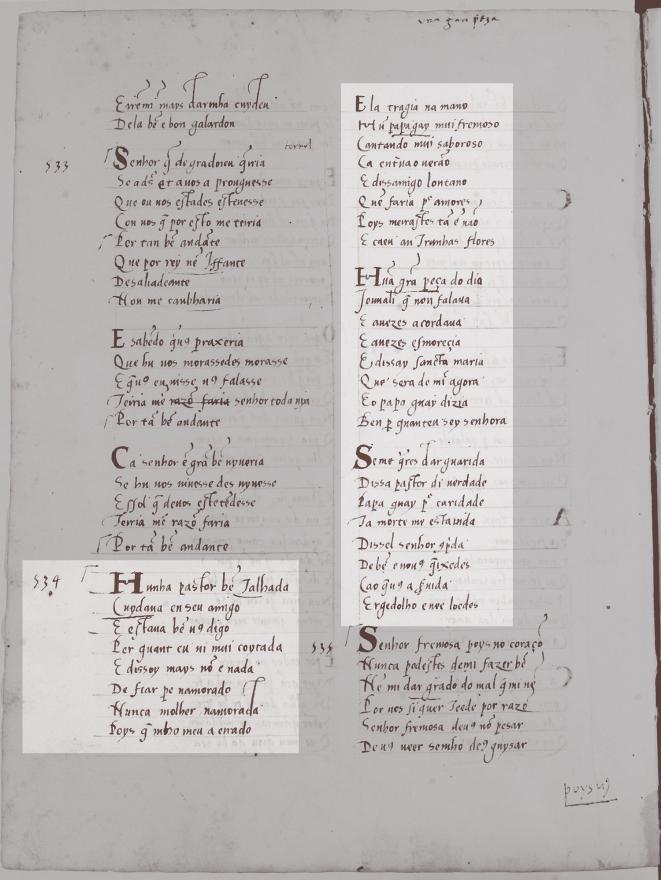 una gran peza
E irem mays darmha cuydeu
Dela be e bon galardon
tornel
533
Senhor q̄ degradoieu q̄ria
Se a d's et auos a prouguesse
Que eu uos estades esteuesse
Con uos q̄ por esto me teiria
Por tan be andāte
Que por rey ne Iffante
Desaliadeante
Non me canbharia
E sabēdo q̄ u9 praxeria
Que hu uos morassedes morasse
E q̄ u9 eu uisse, u9 falasse
Teiria me razō faria senhor toda uya
Por tā be andante
Ca senhor e grā be nyueria
Se hu uos uiuesse des uyuesse
E ssol q̄ deuos esteēdesse
Teiria me razō faria
Por tā be andante
534
Hunha pastor be Talhada
Cuydaua en seu amigo
E estaua be u9 digo
Per quant eu ui mui coytada
E dissoy mays nō e nada
De fiar pe namorado
Nunca molher namorada
Poys q̄ mho meu a errado
Ela tragia na mano
Hu papagay mui fremoso
Cantando mui saboroso
Ca entraua o uerāo
E diss amigo loucano
Que faria p' amores
Poys meirastes tā e uāo
E caeu an Trunhas flores
Hūa grā peça do dia
Iouu ali q̄ non falaua
E auezes acordaua
E auezes esmoreçia
E dissay sancta maria
Que sera de mi agora
E o papa guay dizia
Ben p quanteu sey senhora
Seme q̄res dar guarida
Dissa pastor di uerdade
Papa guay p' caridade
Ca morte me esta uida
Dissel senhor cōpda
De be e nou9 q̄ixedes
Ca o q̄ u9 a seruida
Ergedolho e uee loedes
535
Senhor fremosa poys no coraçō
Nunca podestes demi fazer be
Ne mi dar grado do mal q̄ mi ue
Por uos si quer Teede por razō
Senhor fremosa deu9 nō pesar
De u9 ueer semho de9 guysar
poys u9